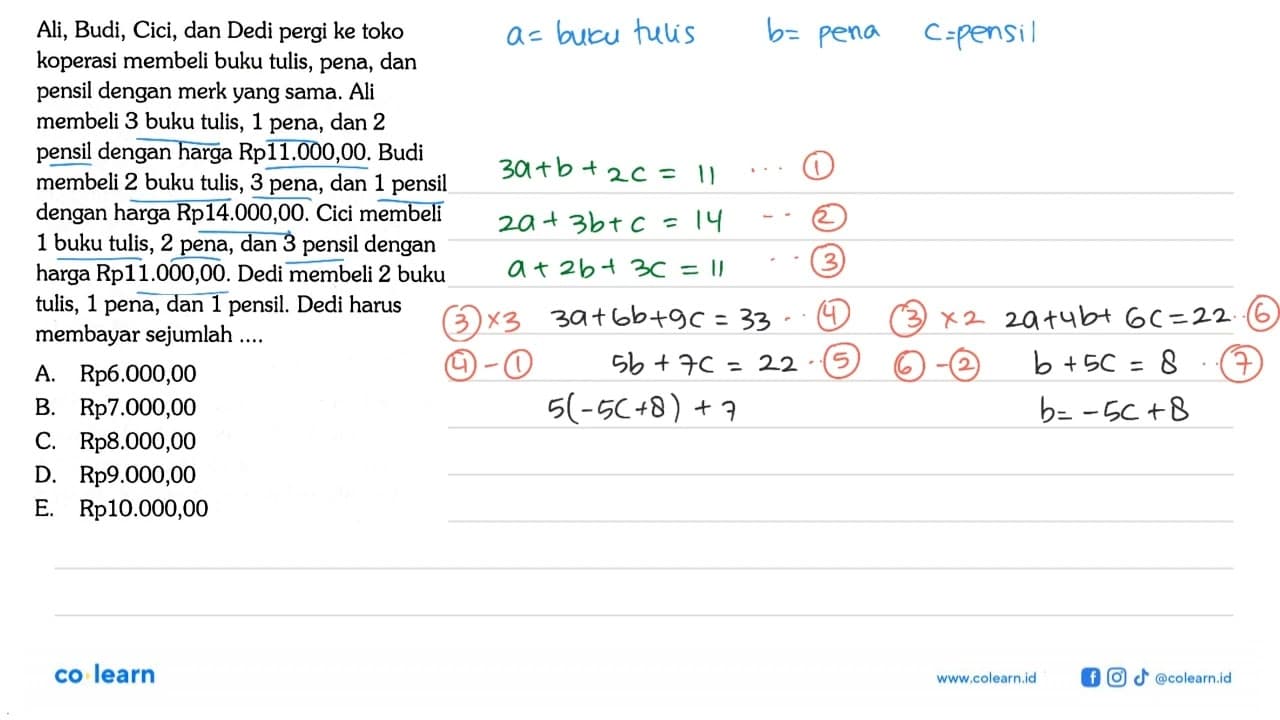 Ali, Budi, Cici, dan Dedi pergi ke toko
koperasi membeli buku tulis, pena, dan
pensil dengan merk yang sama. Ali
membeli 3 buku tulis, 1 pena, dan 2
pensil dengan harga Rp11.000,00. Budi
membeli 2 buku tulis, 3 pena, dan 1 pensil
dengan harga Rp14.000,00. Cici membeli
1 buku tulis, 2 pena, dan 3 pensil dengan
harga Rp11.000,00. Dedi membeli 2 buku
tulis, 1 pena, dan 1 pensil. Dedi harus
membayar sejumlah ....
A. Rp6.000,00
B. Rp7.000,00
C. Rp8.000,00
D. Rp9.000,00
E. Rp10.000,00
a= buku tulis b= pena c=pensil
3a+b+2c = 11 ... ①
2a+3b+c = 14 -- ②
a+2b+3c = 11 ·· ③
③×3 3a+6b+9c = 33 ·· ④ ③×2 2a+4b+6c=22 ·· ⑥
④-① 5b+7c = 22 ·· ⑤ ⑥-② b+5c = 8 ·· ⑦
5(-5c+8) + 7 b= -5c+8
co learn
www.colearn.id @colearn.id